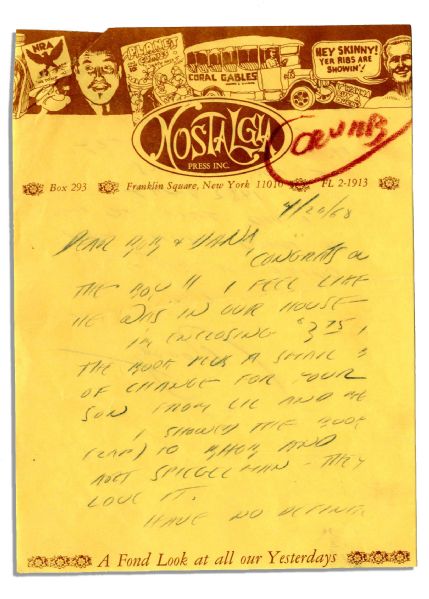 NRA
PLANET COMICS
CORAL GABLES
HEY SKINNY!
YER RIBS ARE
SHOWIN'!
NOSTALGIA
PRESS INC.
CRUMB
Box 293 Franklin Square, New York 11010 FL 2-1913
4/20/68
DEAR & DANA
CONGRATS ON
THE BOY!! I FEEL LIKE
HE WAS IN OUR HOUSE
I'M ENCLOSING $3.75,
THE BOOK PLUS A SMALL
OF CHANGE FOR YOUR
SON FROM LIL AND ME
I SHOWED THE BOOK
(ZAP) TO AND
ART SPIEGELMAN - THEY
LOVE IT.
HAVE NO DEFINITE
A Fond Look at all our Yesterdays